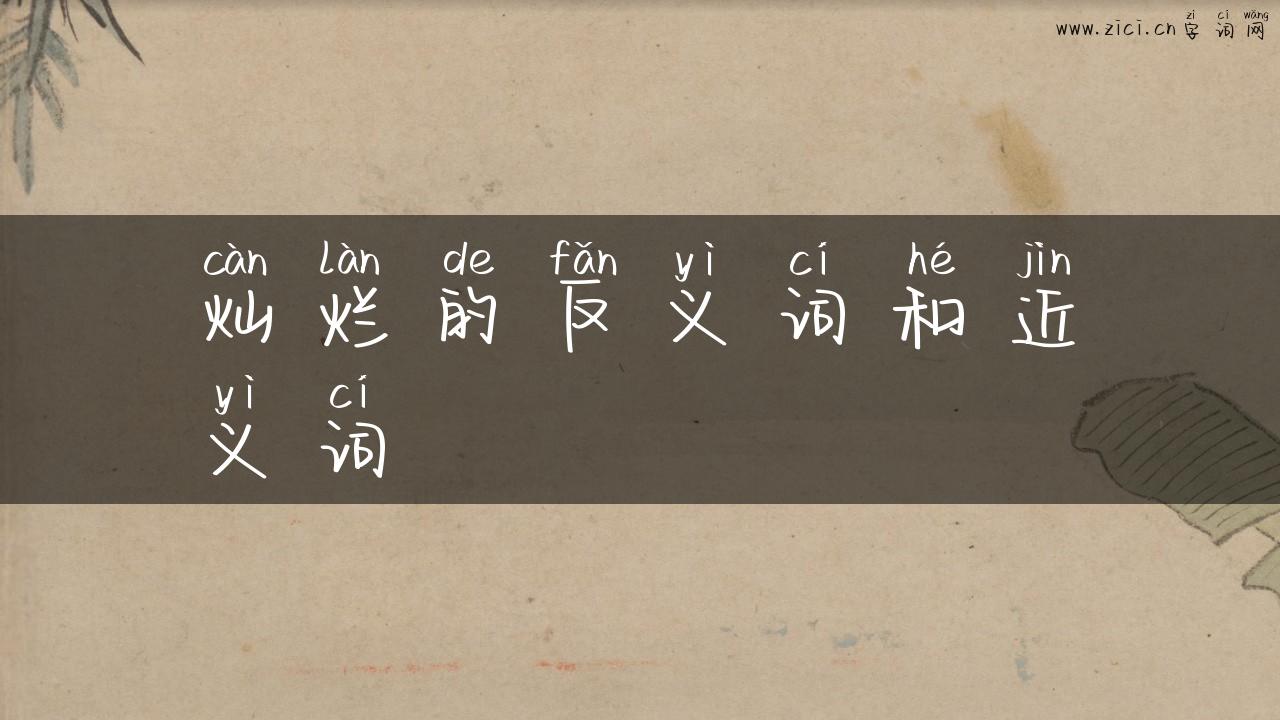 zì cí wǎng
www.zici.cn 字 词 网
càn làn de fǎn yì cí hé jìn
灿 烂 的 反 义 词 和 近
yì cí
义 词